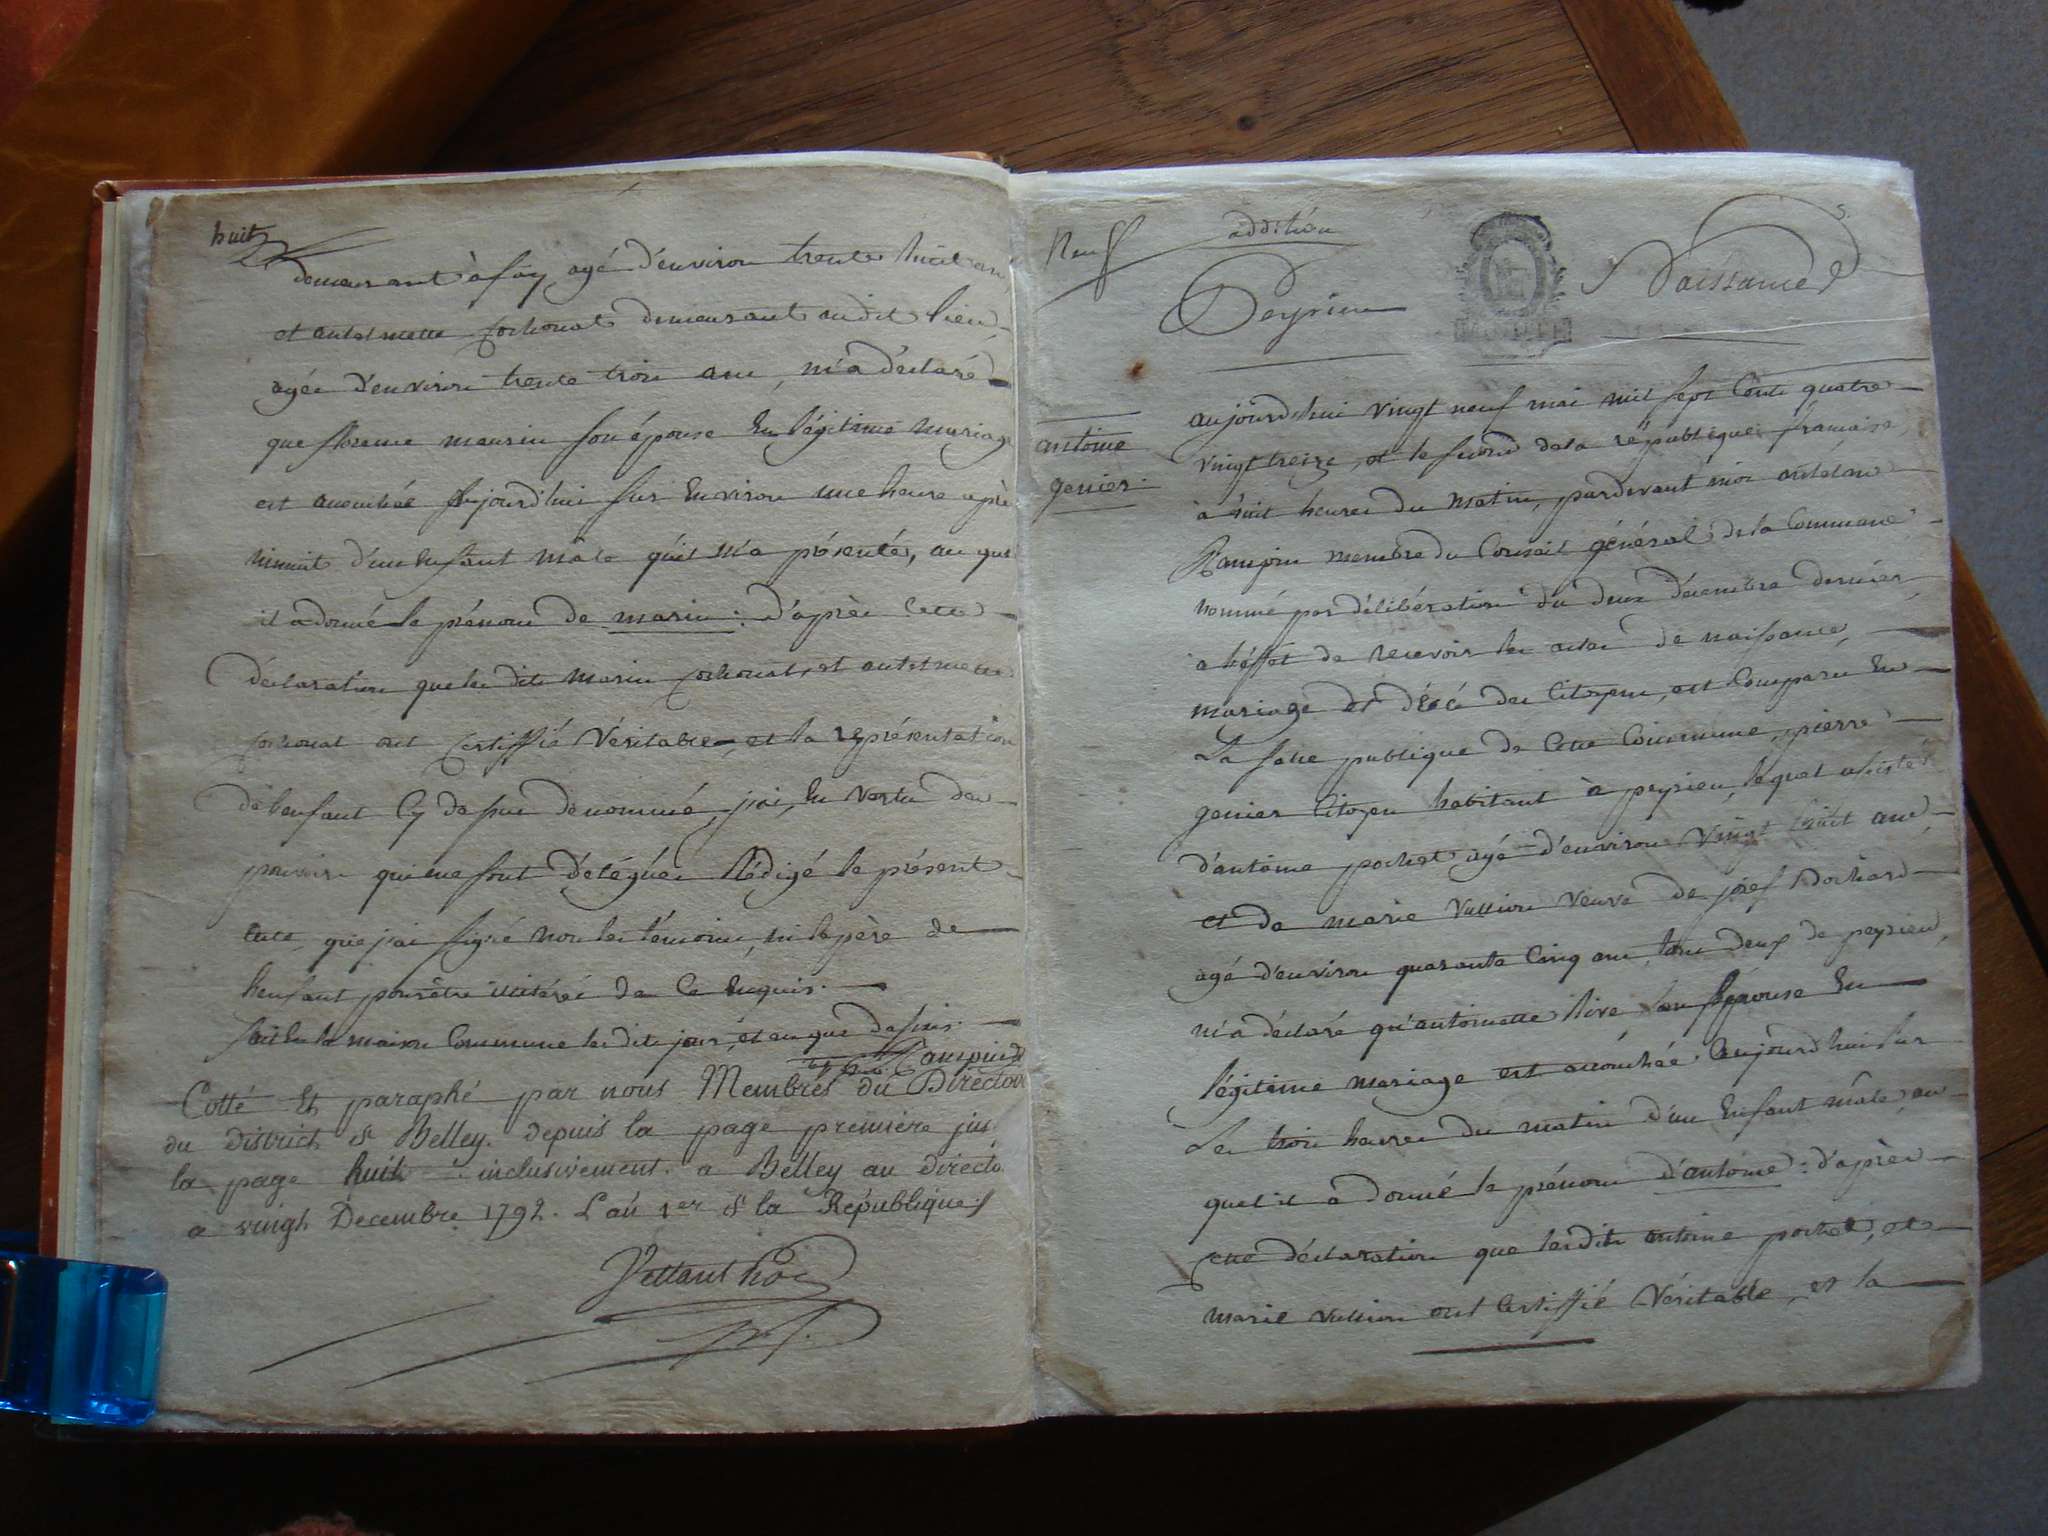 huit
demeurant à fay, agé d'environ trente huit ans
et antelmette cochonat demeurant audit lieu
agée d'environ trente trois ans, m'a déclaré
que maurin son épouse En légitime mariage
est accouchée aujourd'hui sur Environ une heure après
minuit d'un Enfant mâle qu'il m'a présenté, au quel
il a donné le prénom de marin : d'après cette
déclaration que les dits marin cochonat, et antelmette
cochonat ont certiffié Véritable, et la représentation
de l'enfant cy dessus dénommé, j'ai, En Vertu des
pouvoirs qui me sont délégués Rédigé le présent
acte, que j'ai signé non les témoins, ni le père de
l'enfant pour être illitérés de ce Enquis.
fait En la maison Commune les dits jour, et an que dessus.
Cotté Et paraphé par nous Membres du Directoir
du District de Belley. depuis la page première jus
la page huit inclusivement. a Belley au directo
a vingt Decembre 1792. L'an 1er de la République
Neuf
addition
5.
Peyrieu
Naissances
antoine
genier.
aujourd'hui vingt neuf mai mil sept Cents quatre
vingt treize, et le second de la république française,
à huit heures du matin, pardevant moi antelme
membre du Conseil général de la Commune
nommé par délibération du deux décembre dernier
a l'effet de recevoir les actes de naissance,
mariage et décé des Citoyens, est Comparu En
La salle publique de Cette Commune, pierre
genier Citoyen habitant à peyrieu, lequel assisté
d'antoine pochet agé d'environ vingt huit ans
et de marie Vullion veuve de josef Dochard
agé d'environ quarante Cinq ans, tous deux de peyrieu,
m'a déclaré qu'antoinette live son Épouse En
légitime mariage est accouchée aujourd'hui sur
Les trois heures du matin d'un Enfant mâle, au
quel il a donné le prénom d'antoine : d'après
cette déclaration que lesdits antoine pochet, et
marie Vullion ont Certiffié Véritable, et la